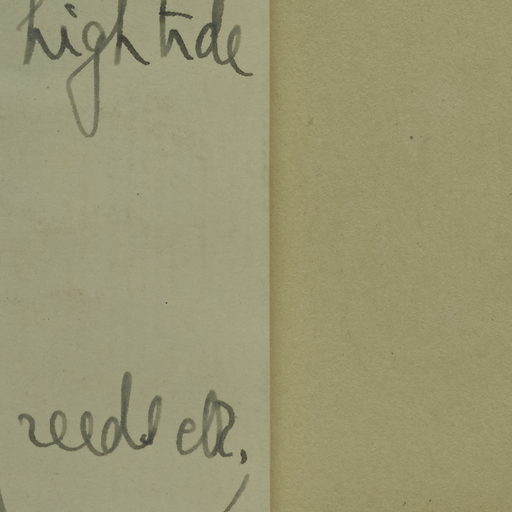 high tide
reeds etc,